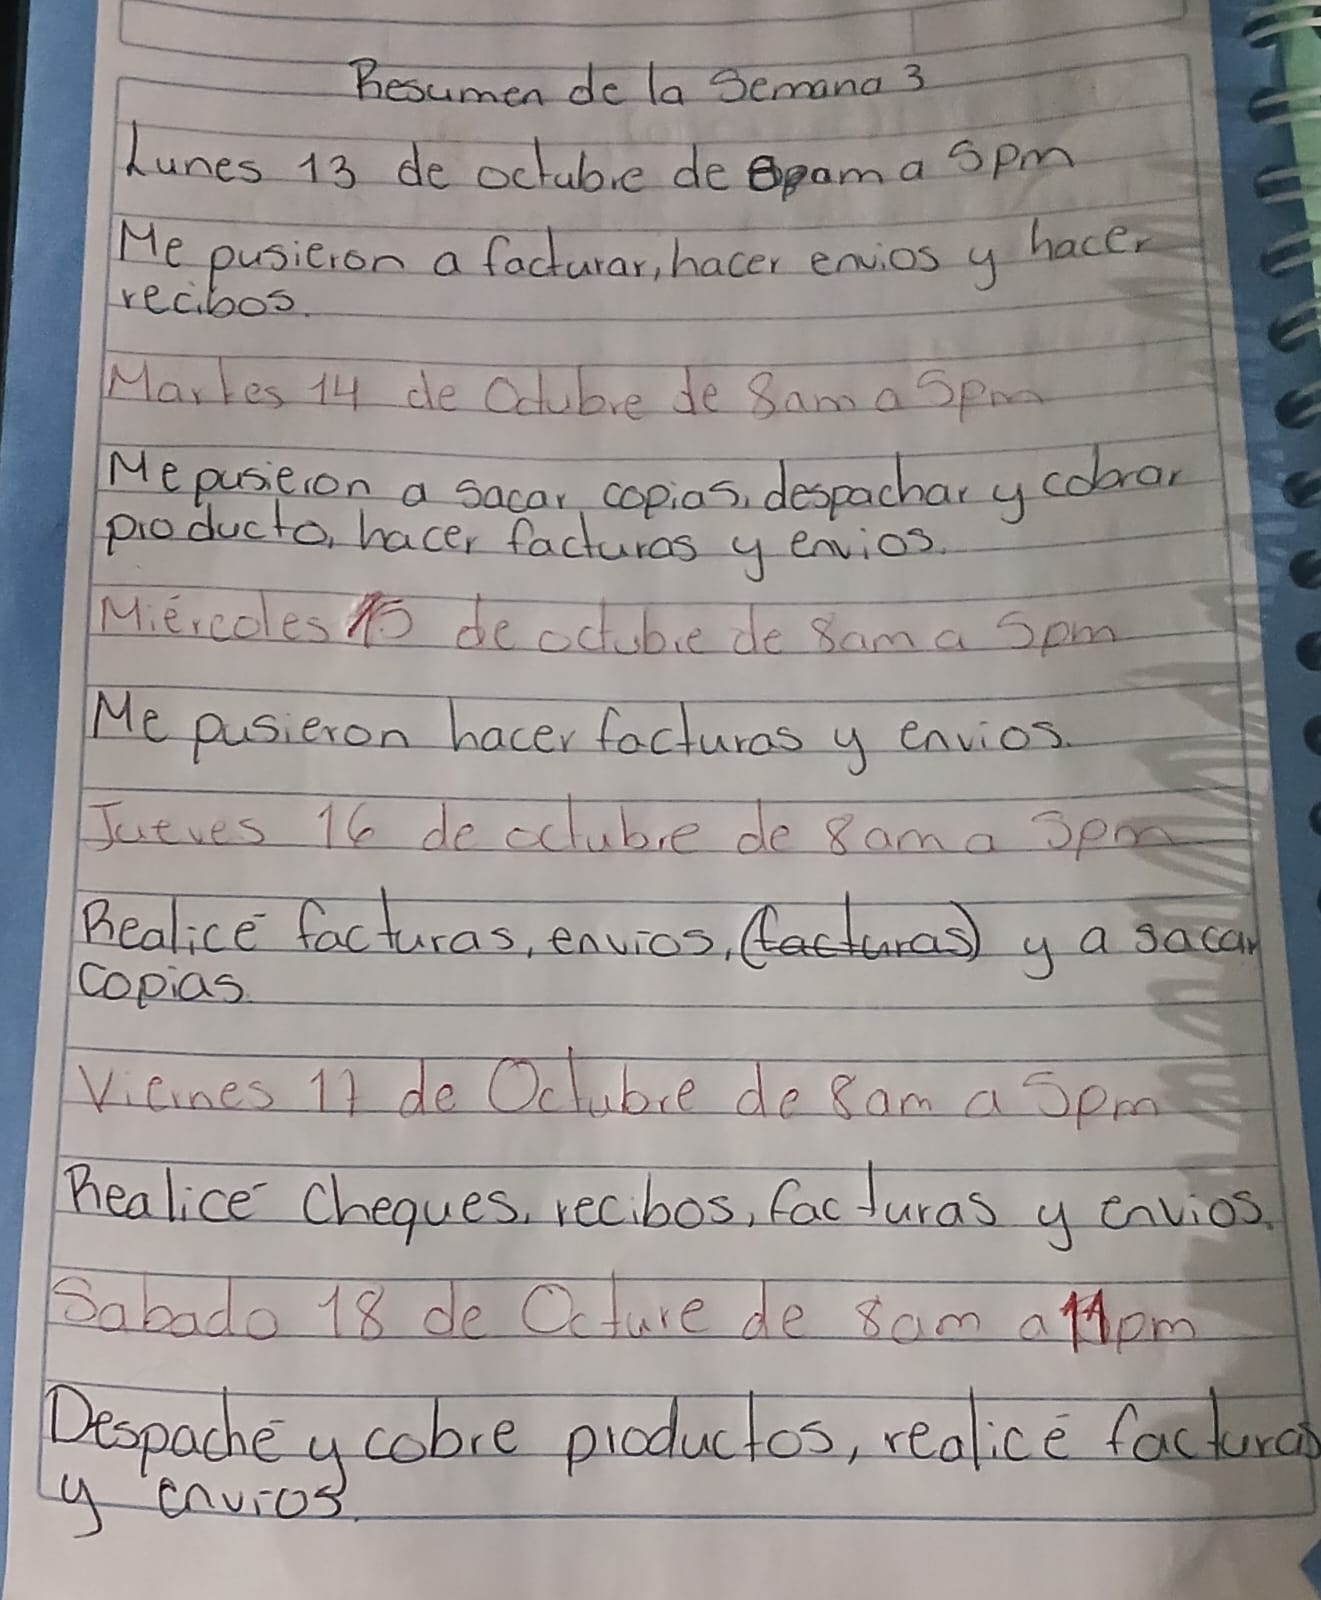 Resumen de la Semana 3
Lunes 13 de octubre de 8am a 5pm
Me pusieron a facturar, hacer envios y hacer
recibos.
Martes 14 de Octubre de 8am a 5pm
Me pusieron a sacar copias, despachar y cobrar
producto, hacer facturas y envios.
Miércoles 15 de octubre de 8am a 5pm
Me pusieron hacer facturas y envios.
Jueves 16 de octubre de 8am a 5pm
Realicé facturas, envios, (facturas) y a sacar
copias.
Viernes 17 de Octubre de 8am a 5pm
Realicé cheques, recibos, facturas y envios.
Sabado 18 de Octure de 8am a pm
Despaché y cobre productos, realicé facturas
y envios.